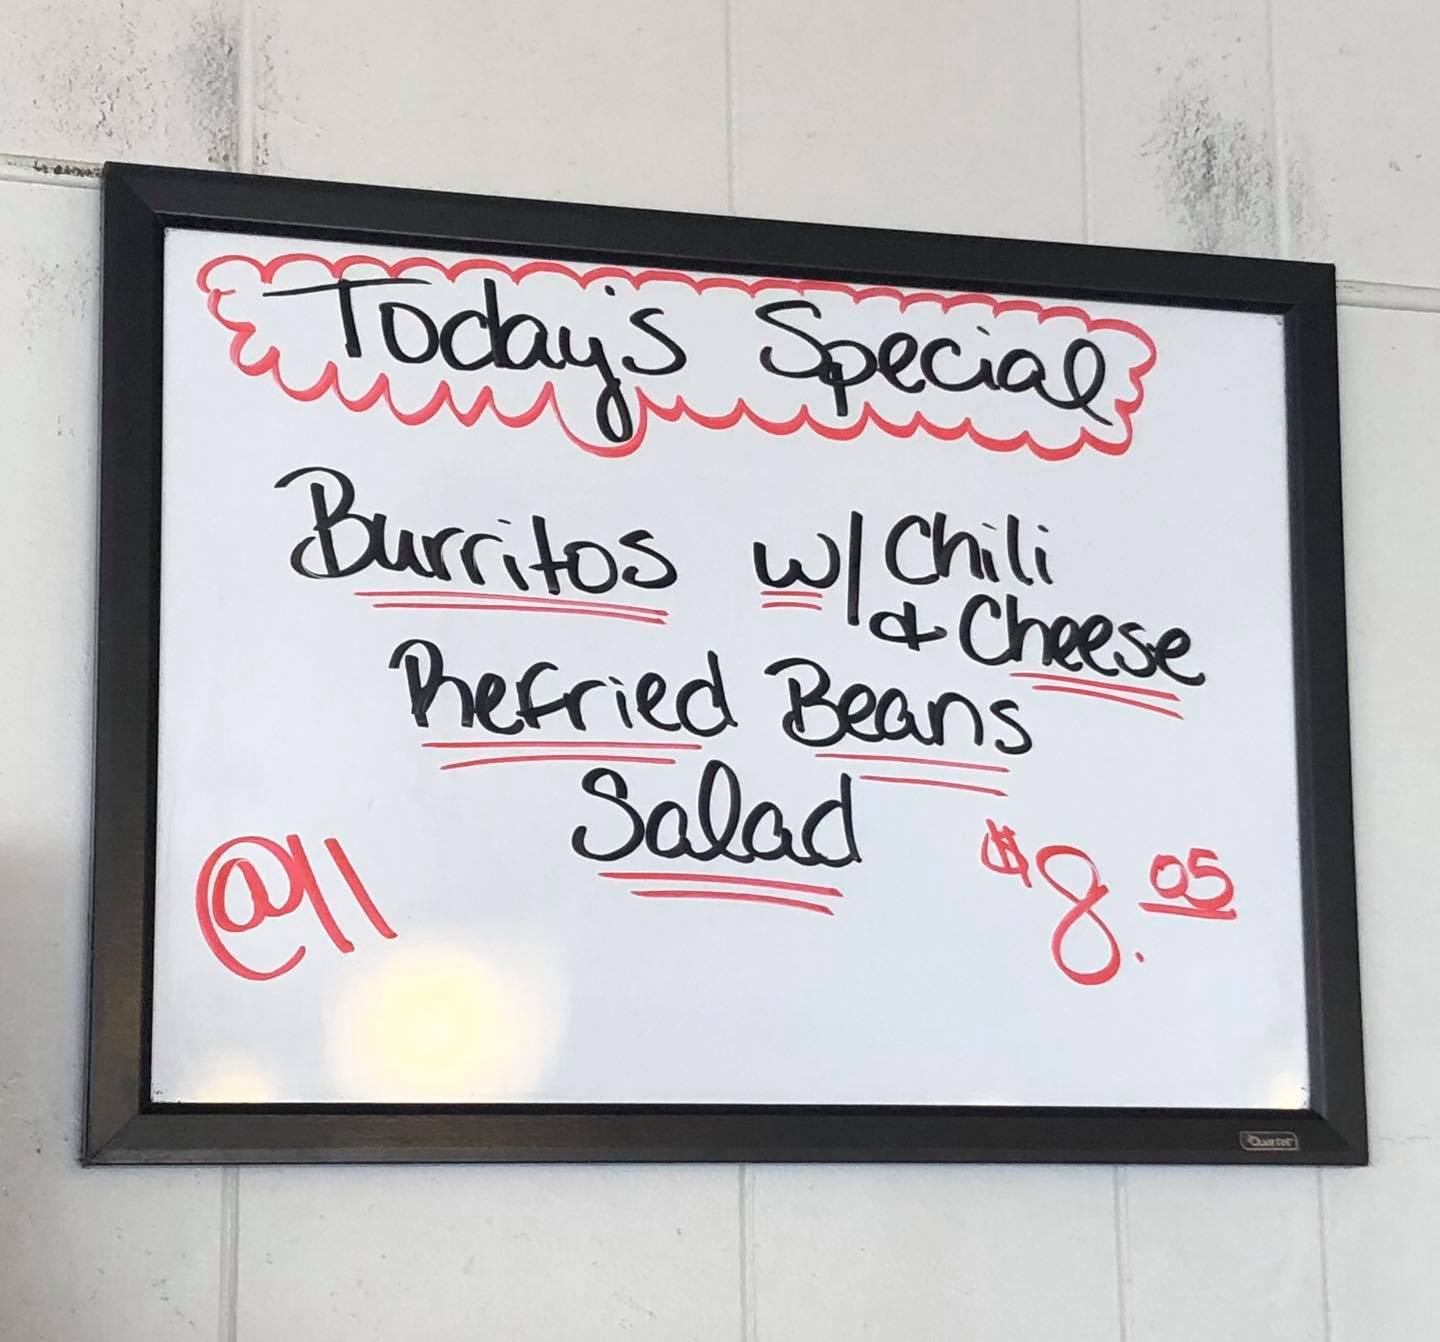 Today's Special
Burritos w/ Chili
& Cheese
Refried Beans
Salad
@11
$8.05
Quartet